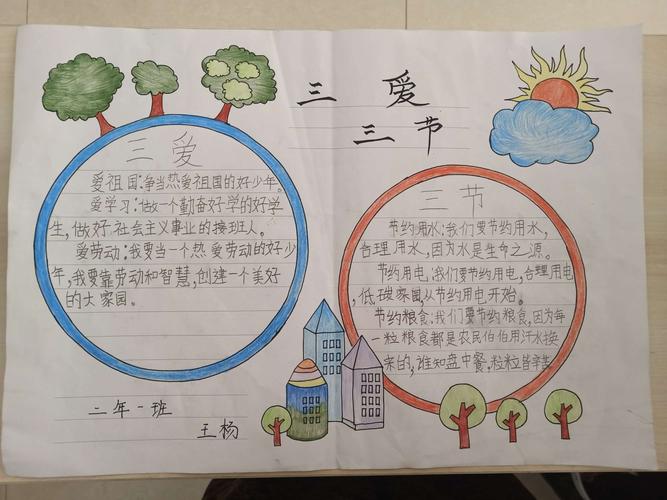 三 爱
三节
三 爱
爱祖国:争当热爱祖国的好少年。
爱学习:做一个勤奋好学的好学
生,做好社会主义事业的接班人。
爱劳动:我要当一个热爱劳动的好少
年,我要靠劳动和智慧,创建一个美好
的大家园。
三节
节约用水:我们要节约用水,
合理用水,因为水是生命之源。
节约用电:我们要节约用电,合理用电
,低碳家园,从节约用电开始。
节约粮食:我们要节约粮食,因为每
一粒粮食都是农民伯伯用汗水换
来的,谁知盘中餐,粒粒皆辛苦
二年一班
王杨